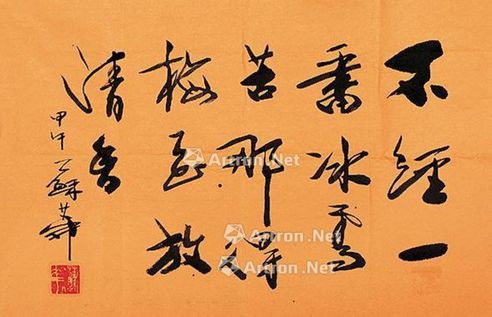 不經一
番冰雪
苦那得
梅花放
清香
甲午 蘇華
Artron.Net
Artron.Net
Artron.Net
Artron.Net